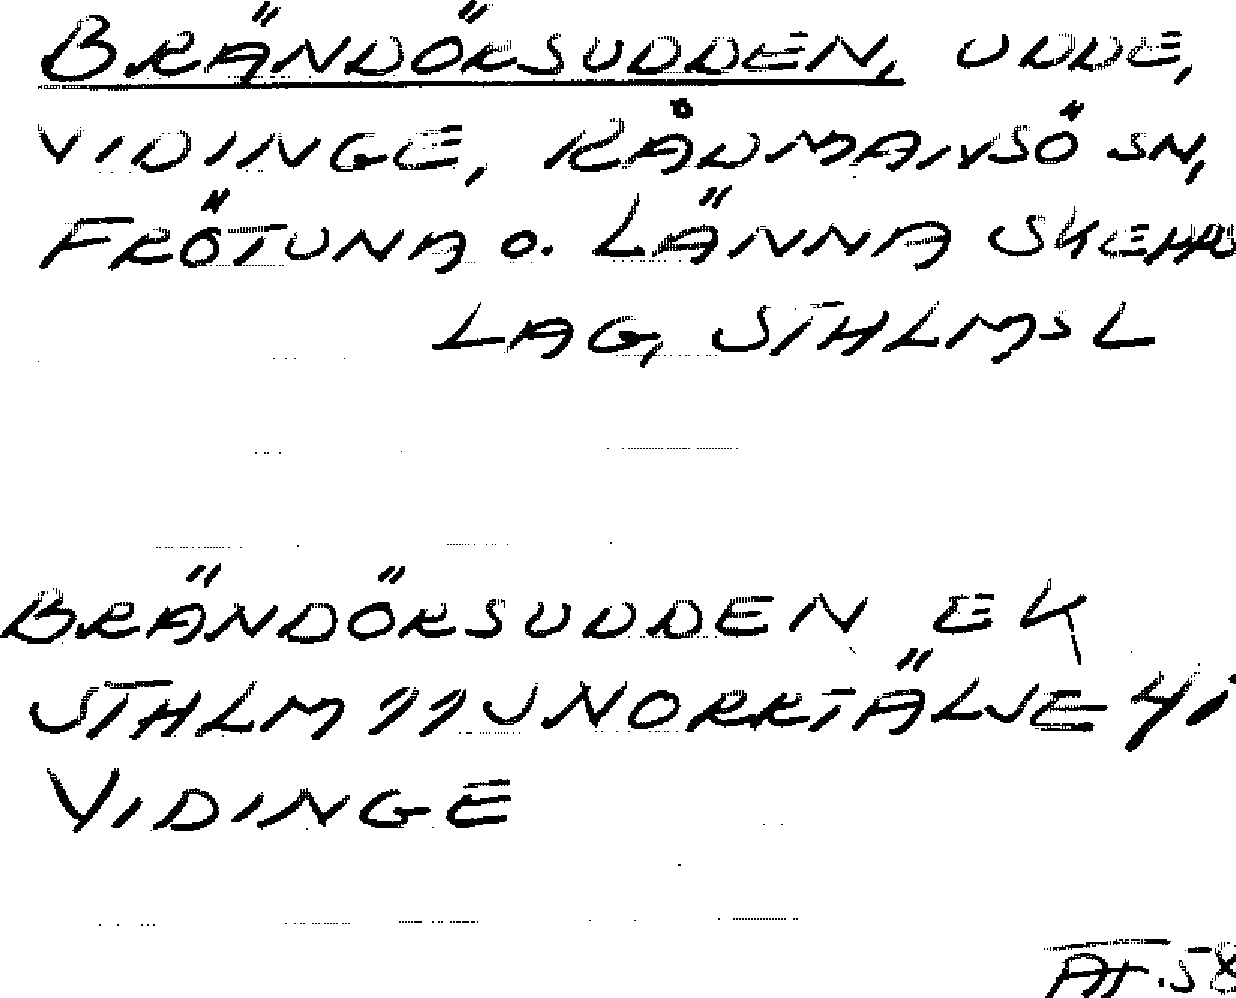 BRÄNDÖRSUDDEN, UDDE,
VIDINGE, RÅDMANSÖ SN,
FRÖTUNA O. LÄNNA SKEPPS
LAG, STHLMS L
BRÄNDÖRSUDDEN EK
STHLM 11J NORRTÄLJE 4i
VIDINGE
AT.58